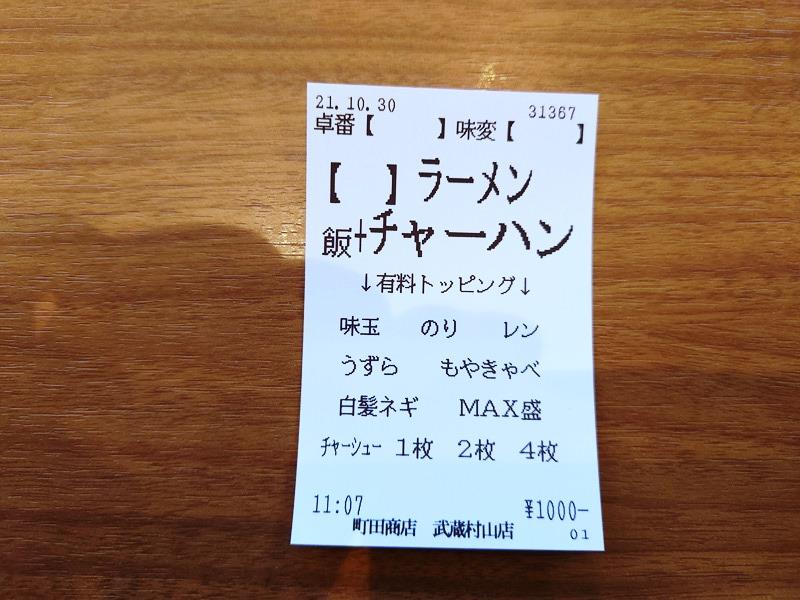 21.10.30 31367
卓番【 】味変【 】
【 】ラーメン
飯+チャーハン
↓有料トッピング↓
味玉 のり レン
うずら もやきゃべ
白髪ネギ MAX盛
チャーシュー 1枚 2枚 4枚
11:07 ¥1000-
町田商店 武蔵村山店 01